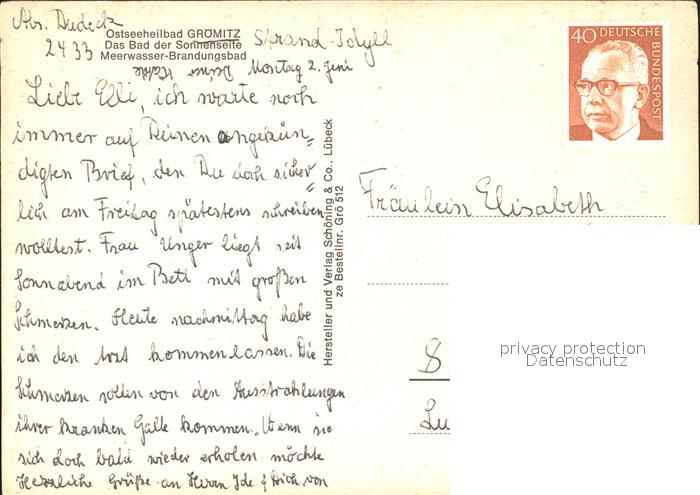 Abs. Dudeck
2433
Ostseeheilbad GRÖMITZ
Das Bad der Sonnenseite
Meerwasser-Brandungsbad
Strand-Idyll
Montag 2. Juni
Liebe Elli, ich warte noch
immer auf Deinen angekün=
digten Brief, den Du doch sicher=
lich am Freitag spätestens schreiben
wolltest. Frau Unger liegt seit
Sonnabend im Bett mit großen
Schmerzen. Heute nachmittag habe
ich den Arzt kommen lassen. Die
Schmerzen sollen von den Ausstrahlungen
ihrer kranken Galle kommen. Wenn sie
sich doch bald wieder erholen möchte
Herzliche Grüße an Herrn Ide & Dich von
Deiner
Hersteller und Verlag Schöning & Co., Lübeck
ze Bestellnr. Grö 512
40 DEUTSCHE
BUNDESPOST
Fräulein Elisabeth
8
Lu
privacy protection
Datenschutz